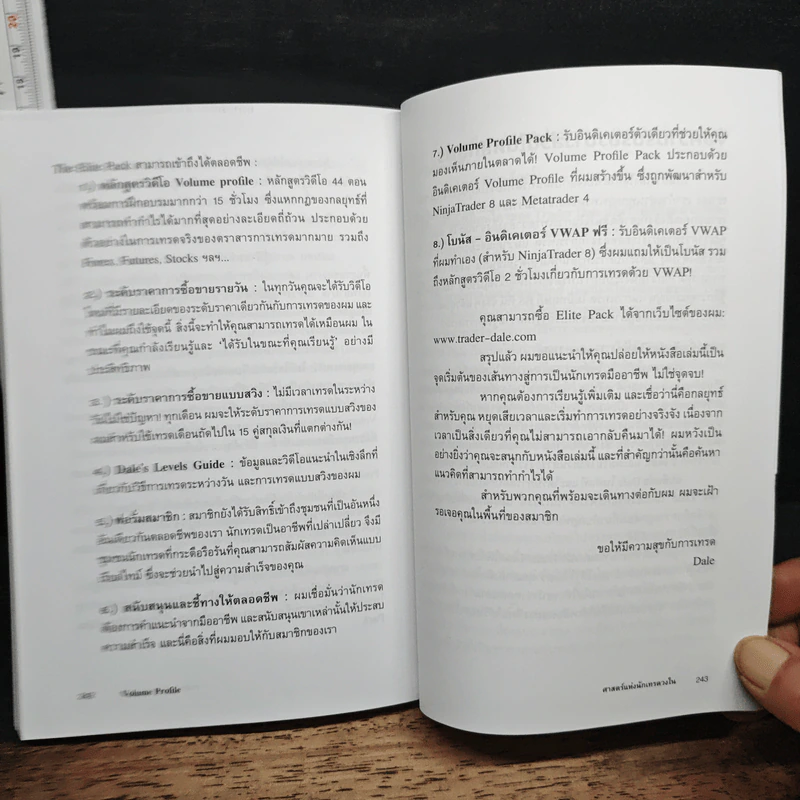 The Elite Pack สามารถเข้าถึงได้ตลอดชีพ :
1.) หลักสูตรวิดีโอ Volume profile : หลักสูตรวิดีโอ 44 ตอน
พร้อมการฝึกอบรมมากกว่า 15 ชั่วโมง ซึ่งแหกกฎของกลยุทธ์ที่
สามารถทำกำไรได้มากที่สุดอย่างละเอียดถี่ถ้วน ประกอบด้วย
ตัวอย่างในการเทรดจริงของตราสารการเทรดมากมาย รวมถึง
Forex, Futures, Stocks ฯลฯ...
2.) ระดับราคาการซื้อขายรายวัน : ในทุกวันคุณจะได้รับวิดีโอ
ใหม่ที่มีรายละเอียดของระดับราคาเดียวกันกับการเทรดของผม และ
ทำไมผมถึงใช้จุดนี้ สิ่งนี้จะทำให้คุณสามารถเทรดได้เหมือนผม ใน
ขณะที่คุณกำลังเรียนรู้และ 'ได้รับในขณะที่คุณเรียนรู้' อย่างมี
ประสิทธิภาพ
3.) ระดับราคาการซื้อขายแบบสวิง : ไม่มีเวลาเทรดในระหว่าง
วันไม่ใช่ปัญหา! ทุกเดือน ผมจะให้ระดับราคาการเทรดแบบสวิงของ
ผมสำหรับใช้เทรดเดือนถัดไปใน 15 คู่สกุลเงินที่แตกต่างกัน!
4.) Dale's Levels Guide : ข้อมูลและวิดีโอแนะนำในเชิงลึกที่
เกี่ยวกับวิธีการเทรดระหว่างวัน และการเทรดแบบสวิงของผม
5.) ฟอรั่มสมาชิก : สมาชิกยังได้รับสิทธิ์เข้าถึงชุมชนที่เป็นอันหนึ่ง
อันเดียวกันตลอดชีพของเรา นักเทรดเป็นอาชีพที่เปล่าเปลี่ยว จึงมี
ชุมชนนักเทรดที่กระตือรือรันที่คุณสามารถสัมผัสความคิดเห็นแบบ
เรียลไทม์ ซึ่งจะช่วยนำไปสู่ความสำเร็จของคุณ
6.) สนับสนุนและชี้ทางให้ตลอดชีพ : ผมเชื่อมั่นว่านักเทรด
ต้องการคำแนะนำจากมืออาชีพ และสนับสนุนเขาเหล่านั้นให้ประสบ
ความสำเร็จ และนี่คือสิ่งที่ผมมอบให้กับสมาชิกของเรา
Volume Profile
7.) Volume Profile Pack : รับอินดิเคเตอร์ตัวเดียวที่ช่วยให้คุณ
มองเห็นภายในตลาดได้! Volume Profile Pack ประกอบด้วย
อินดิเคเตอร์ Volume Profile ที่ผมสร้างขึ้น ซึ่งถูกพัฒนาสำหรับ
NinjaTrader 8 และ Metatrader 4
8.) โบนัส – อินดิเคเตอร์ VWAP ฟรี : รับอินดิเคเตอร์ VWAP
ที่ผมทำเอง (สำหรับ NinjaTrader 8) ซึ่งผมแถมให้เป็นโบนัส รวม
ถึงหลักสูตรวิดีโอ 2 ชั่วโมงเกี่ยวกับการเทรดด้วย VWAP!
คุณสามารถซื้อ Elite Pack ได้จากเว็บไซต์ของผม:
www.trader-dale.com
สรุปแล้ว ผมขอแนะนำให้คุณปล่อยให้หนังสือเล่มนี้เป็น
จุดเริ่มต้นของเส้นทางสู่การเป็นนักเทรดมืออาชีพ ไม่ใช่จุดจบ!
หากคุณต้องการเรียนรู้เพิ่มเติม และเชื่อว่านี่คือกลยุทธ์
สำหรับคุณ หยุดเสียเวลาและเริ่มทำการเทรดอย่างจริงจัง เนื่องจาก
เวลาเป็นสิ่งเดียวที่คุณไม่สามารถเอากลับคืนมาได้! ผมหวังเป็น
อย่างยิ่งว่าคุณจะสนุกกับหนังสือเล่มนี้ และที่สำคัญกว่านั้นคือค้นหา
แนวคิดที่สามารถทำกำไรได้
สำหรับพวกคุณที่พร้อมจะเดินทางต่อกับผม ผมจะเฝ้า
รอเจอคุณในพื้นที่ของสมาชิก
ขอให้มีความสุขกับการเทรด
Dale
ศาสตร์แห่งนักเทรดวงใน 243
20
19
18